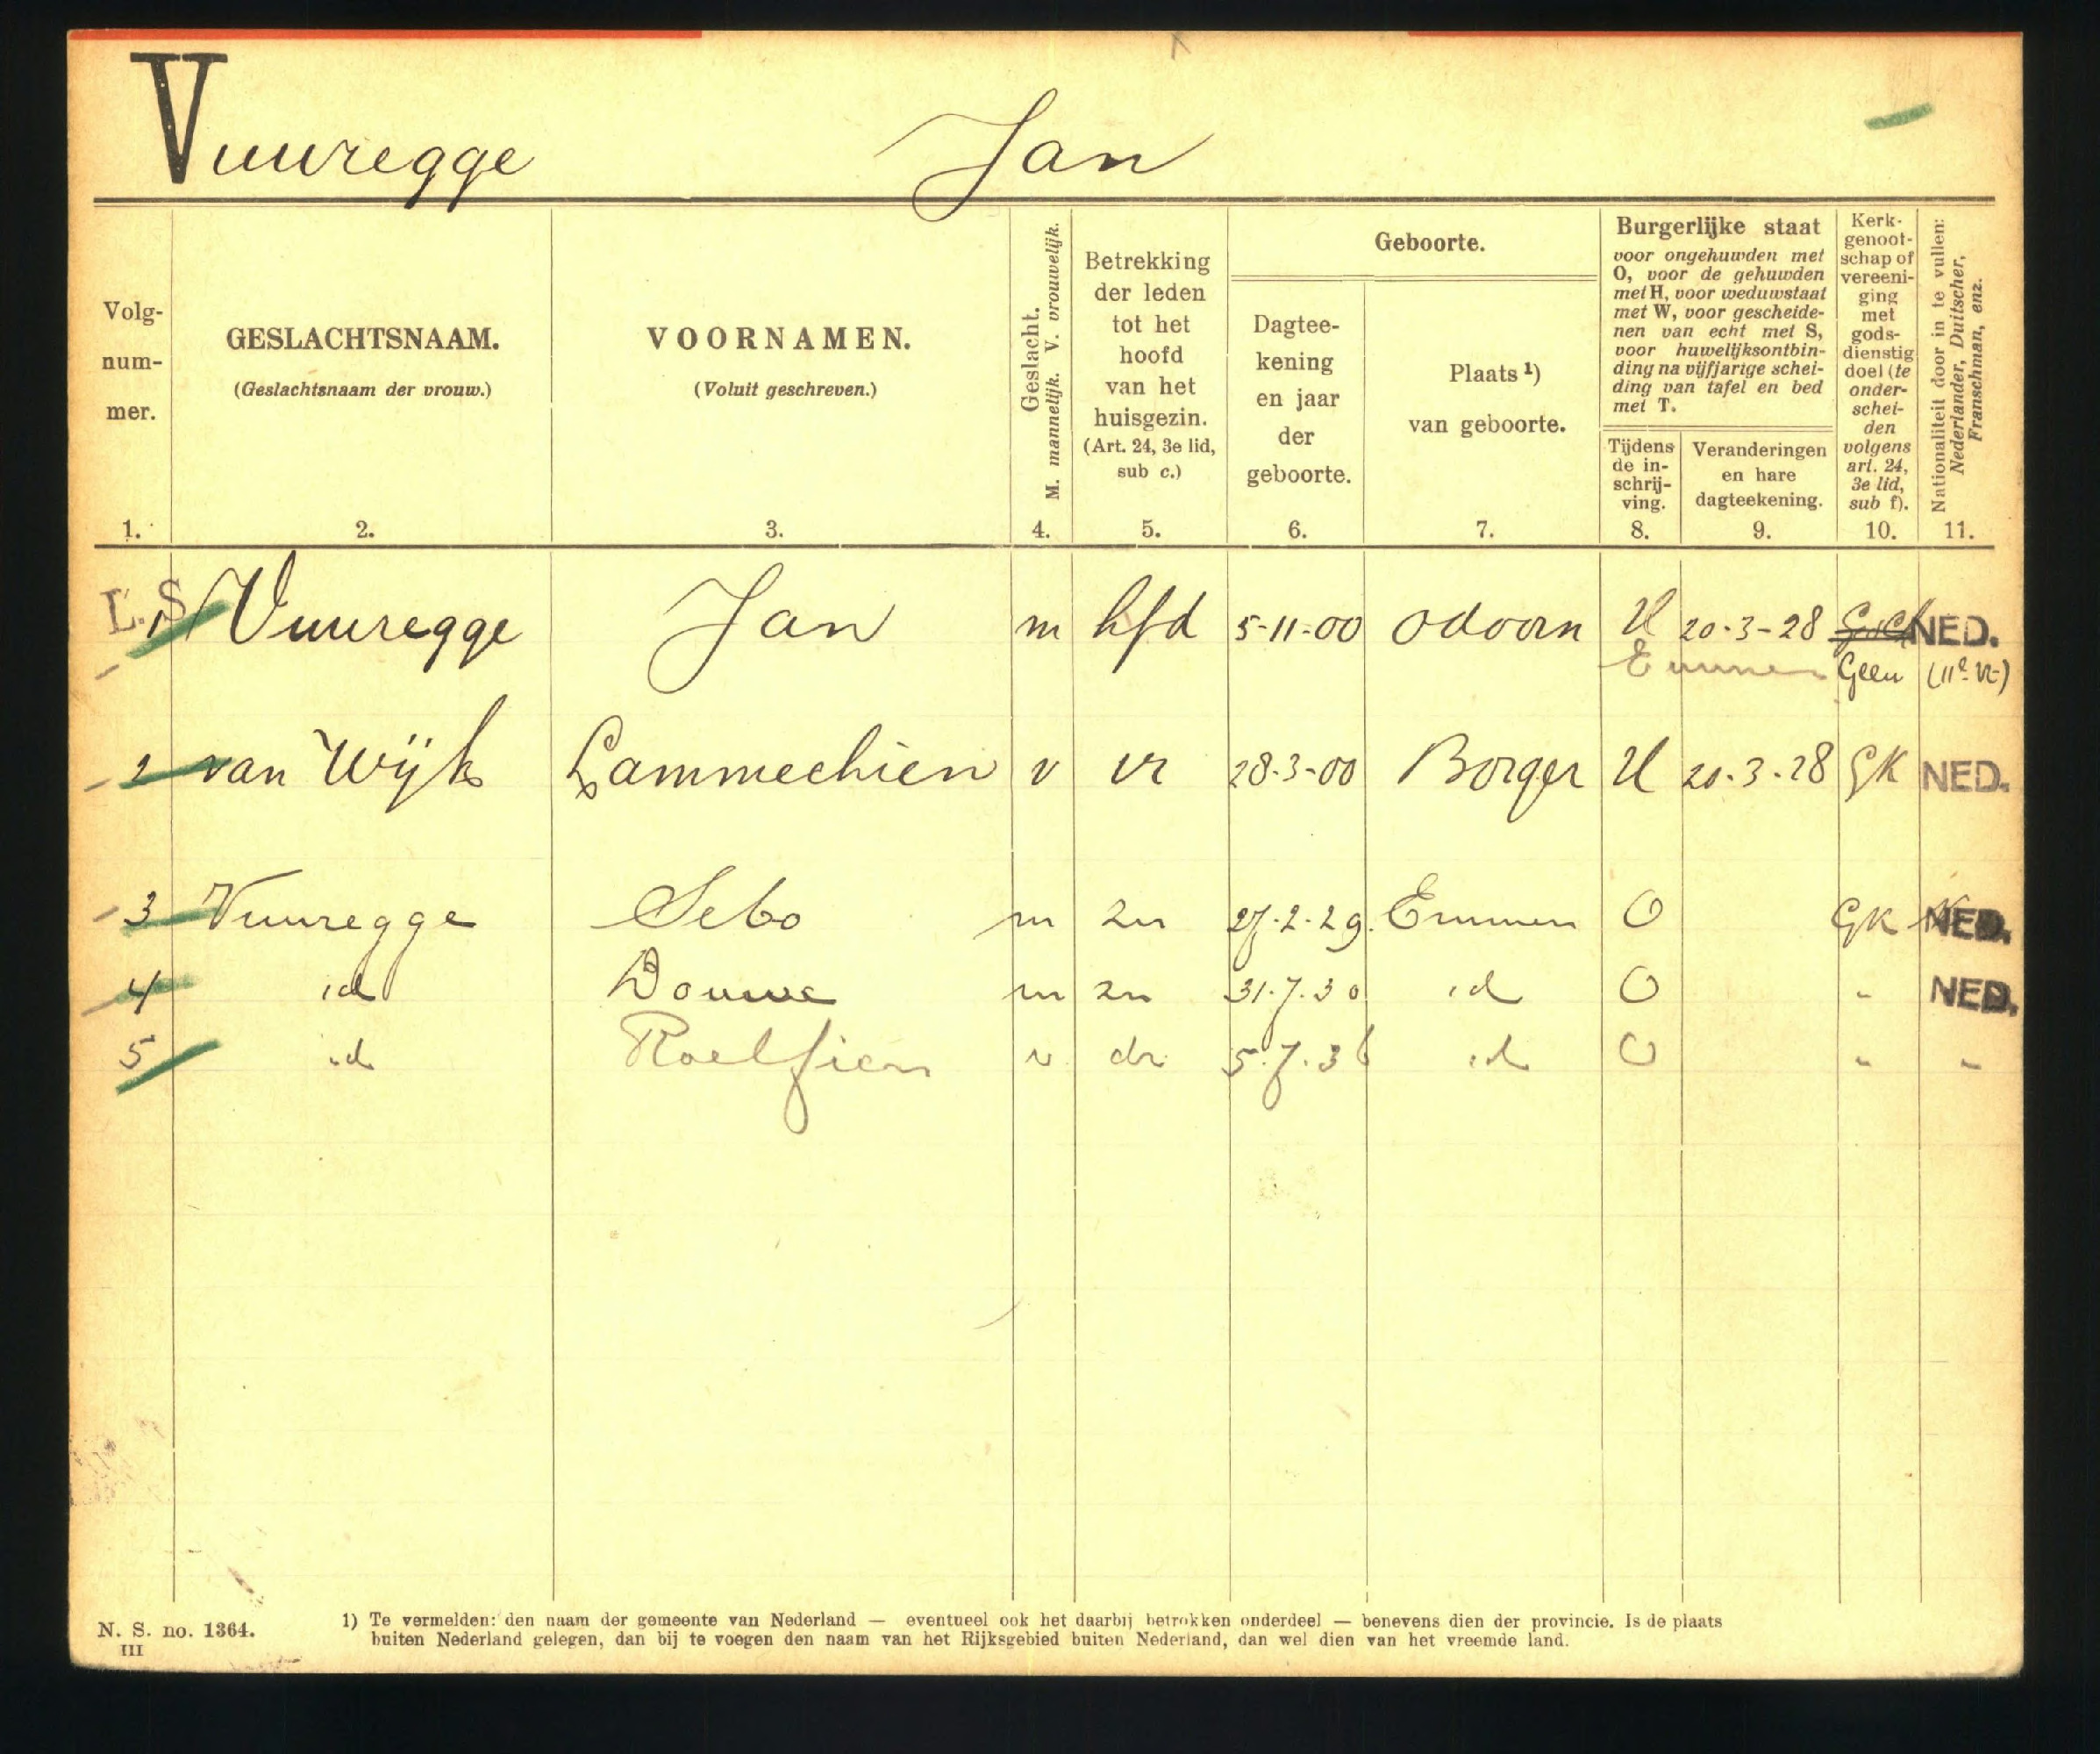 Vuuregge Jan
Volg-
num-
mer.
1.
GESLACHTSNAAM.
(Geslachtsnaam der vrouw.)
2.
VOORNAMEN.
(Voluit geschreven.)
3.
Geslacht.
M. mannelijk. V. vrouwelijk.
4.
Betrekking
der leden
tot het
hoofd
van het
huisgezin.
(Art. 24, 3e lid,
sub c.)
5.
Geboorte.
Dagtee-
kening
en jaar
der
geboorte.
6.
Plaats 1)
van geboorte.
7.
Burgerlijke staat
voor ongehuwden met
O, voor de gehuwden
met H, voor weduwstaat
met W, voor gescheide-
nen van echt met S,
voor huwelijksontbin-
ding na vijfjarige schei-
ding van tafel en bed
met T.
Tijdens
de in-
schrij-
ving.
8.
Veranderingen
en hare
dagteekening.
9.
Kerk-
genoot-
schap of
vereeni-
ging
met
gods-
dienstig
doel (te
onder-
schei-
den
volgens
art. 24,
3e lid,
sub f).
10.
Nationaliteit door in te vullen:
Nederlander, Duitscher,
Franschman, enz.
11.
L.S.
1 Vuuregge Jan m hfd 5-11-00 Odoorn H 20-3-28 NED.
Emmen Geen
2 van Wijk Lammechien v vr 28-3-00 Borger H 20-3-28 GK NED.
3 Vuuregge Sebo m zn 27-2-29 Emmen O GK NED.
4 id Douwe m zn 31.7.30 id O " NED.
5 id Roelfien v dr 5.7.36 id O " "
N. S. no. 1364.
III
1) Te vermelden: den naam der gemeente van Nederland — eventueel ook het daarbij betrokken onderdeel — benevens dien der provincie. Is de plaats
buiten Nederland gelegen, dan bij te voegen den naam van het Rijksgebied buiten Nederland, dan wel dien van het vreemde land.